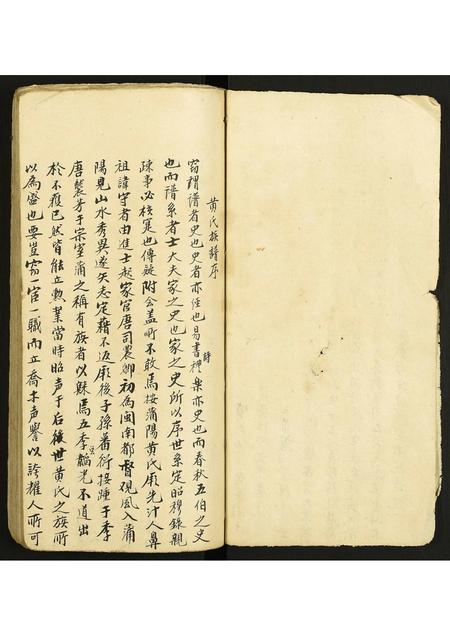 黄氏族譜序
窃謂譜者史也史者亦任也易書詩禮樂亦史也而春秋五伯之史
也而譜系者士大夫家之史也家之史所以序世系定昭穆錄親
疎事必核寔也傳疑附会盖所不敢焉按蒲陽黄氏厥先汁人鼻
祖諱守者由進士起家官唐司農卿初為闽南都督覌風入蒲
陽見山水秀異遂矢志定藉不返厥後子孫蕃衍接踵于季
唐襲芳于宗室蒲之称有族者以縣焉五季韜光不道出
於不穫已然皆能立勲業當時昭声于后後世黄氏之族所
以為盛也要豈窃官一職而立喬木声譽以誇耀人所可